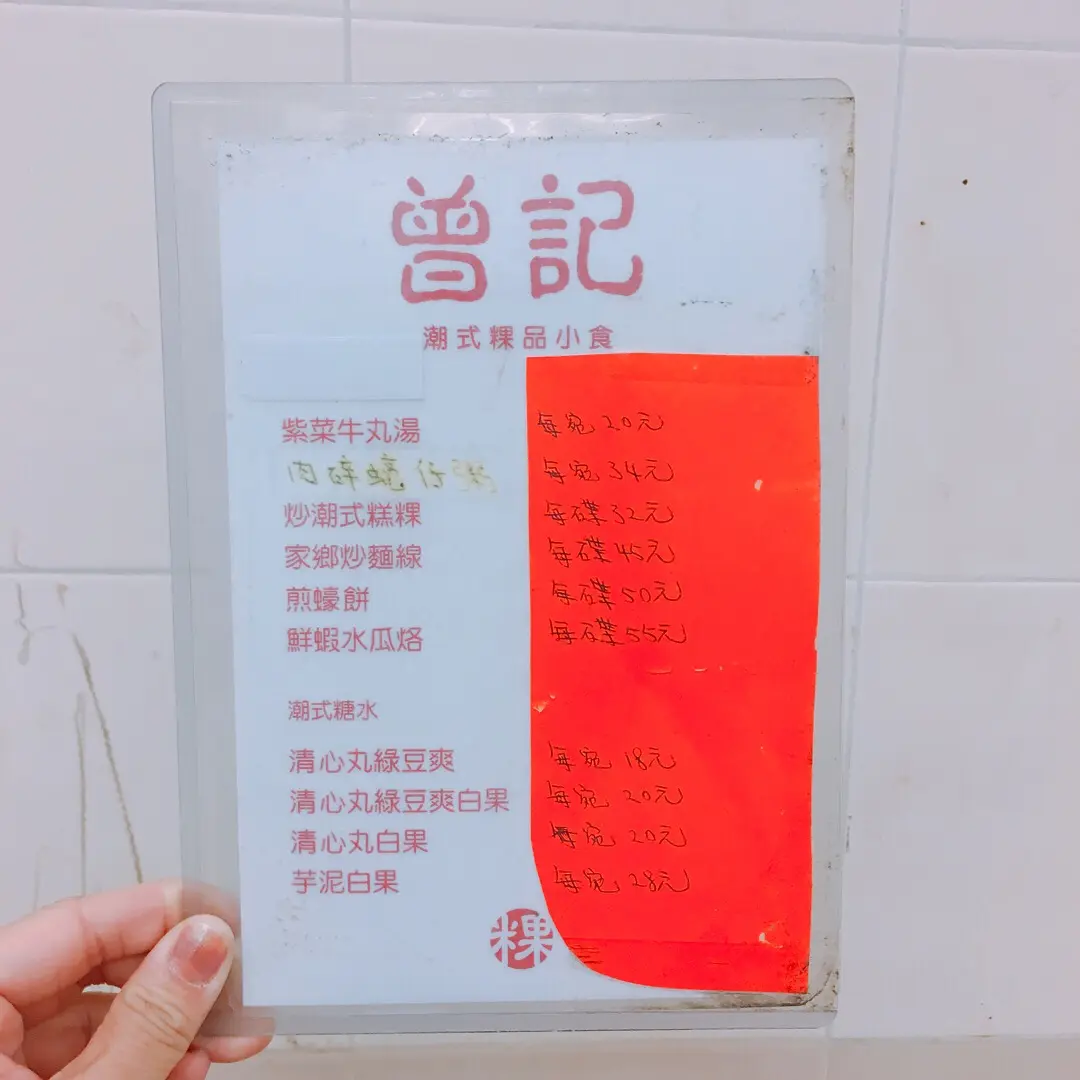 曾記
潮式粿品小食
紫菜牛丸湯 每宛 20元
肉碎蠔仔粥 每宛 34元
炒潮式糕粿 每碟 32元
家鄉炒麵線 每碟 45元
煎蠔餅 每碟 50元
鮮蝦水瓜烙 每碟 55元
潮式糖水
清心丸綠豆爽 每宛 18元
清心丸綠豆爽白果 每宛 20元
清心丸白果 每宛 20元
芋泥白果 每宛 28元
粿